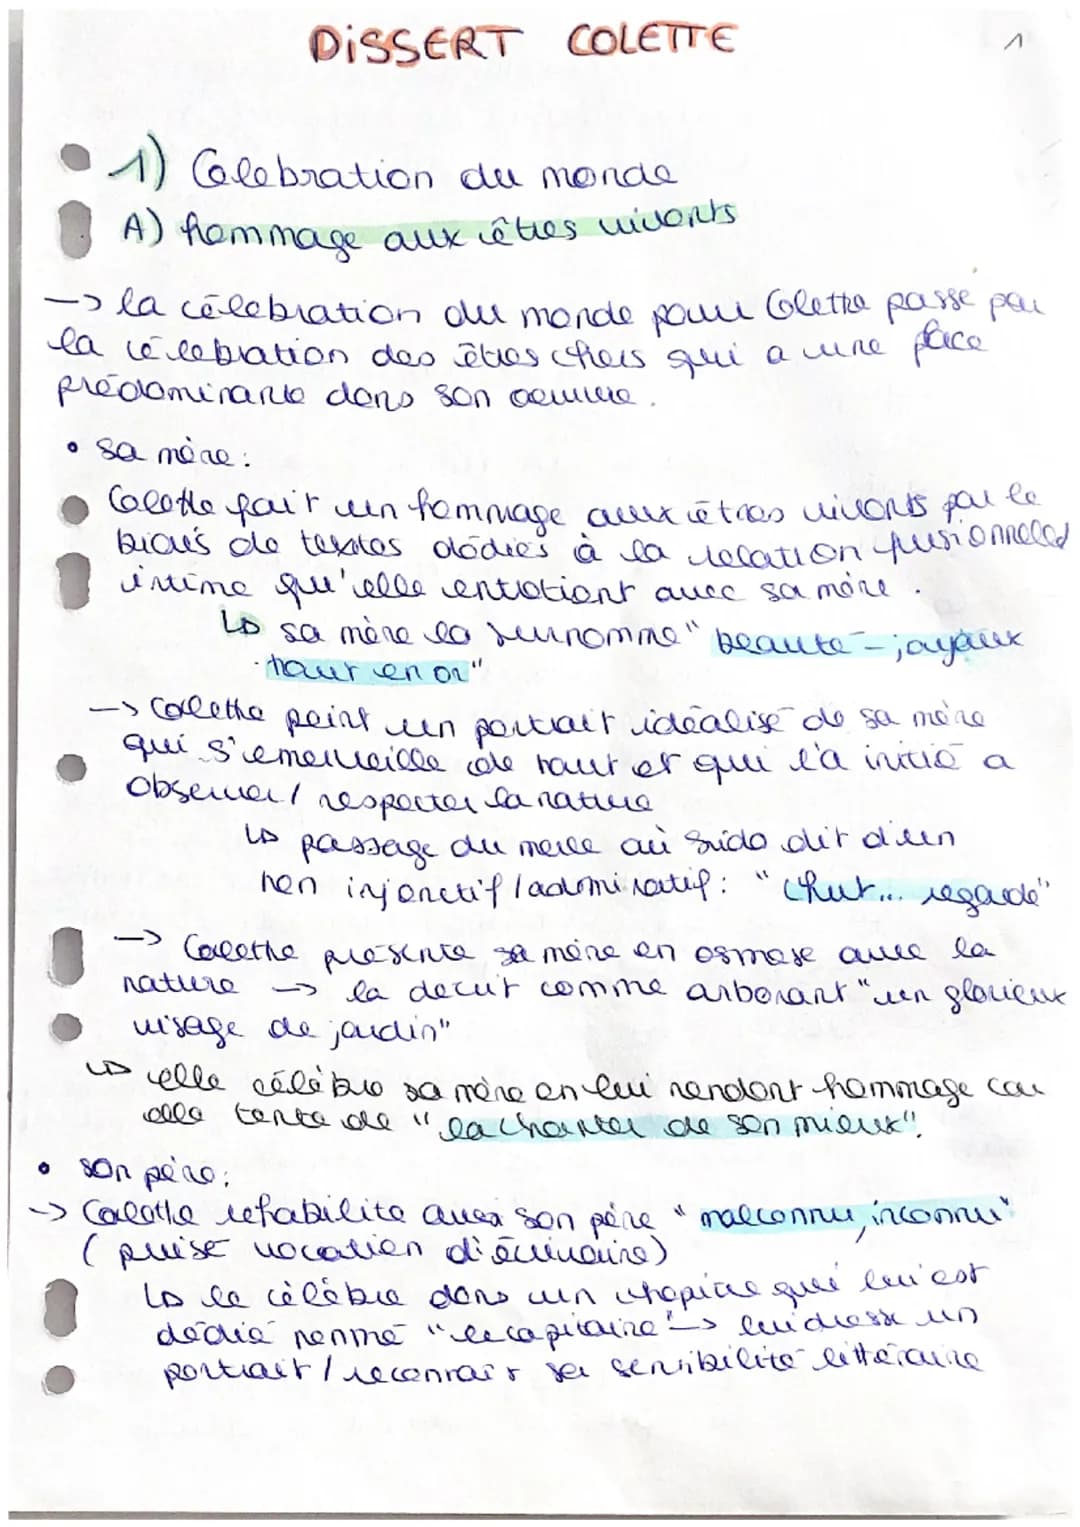 DISSERT COLETTE
1
1) Célébration du monde
A) hommage aux êtres vivants
-> la célébration du monde pour Colette passe par
la célébration des êtres chers qui a une place
prédominante dans son oeuvre.
• sa mère :
Colette fait un hommage aux êtres vivants par le
biais de textes dédiés à la relation fusionnelle/
intime qu'elle entretient avec sa mère.
↳ sa mère la surnomme "beauté - joyaux
tout en or"
-> Colette peint un portrait idéalisé de sa mère
qui s'émerveille de tout et qui l'a initié a
observer / respecter la nature
↳ passage du merle où Sido dit d'un
ton injonctif / admiratif : "chut... regarde"
-> Colette présente sa mère en osmose avec la
nature -> la décrit comme arborant "un glorieux
visage de jardin"
↳ elle célèbre sa mère en lui rendant hommage car
elle tente de "la chanter de son mieux".
• son père :
-> Colette réhabilite aussi son père "malconnu, inconnu"
( puise vocation d'écrivaine)
↳ le célèbre dans un chapitre qui lui est
dédié nommé "le capitaine" -> lui dresse un
portrait / reconnait sa sensibilité littéraire